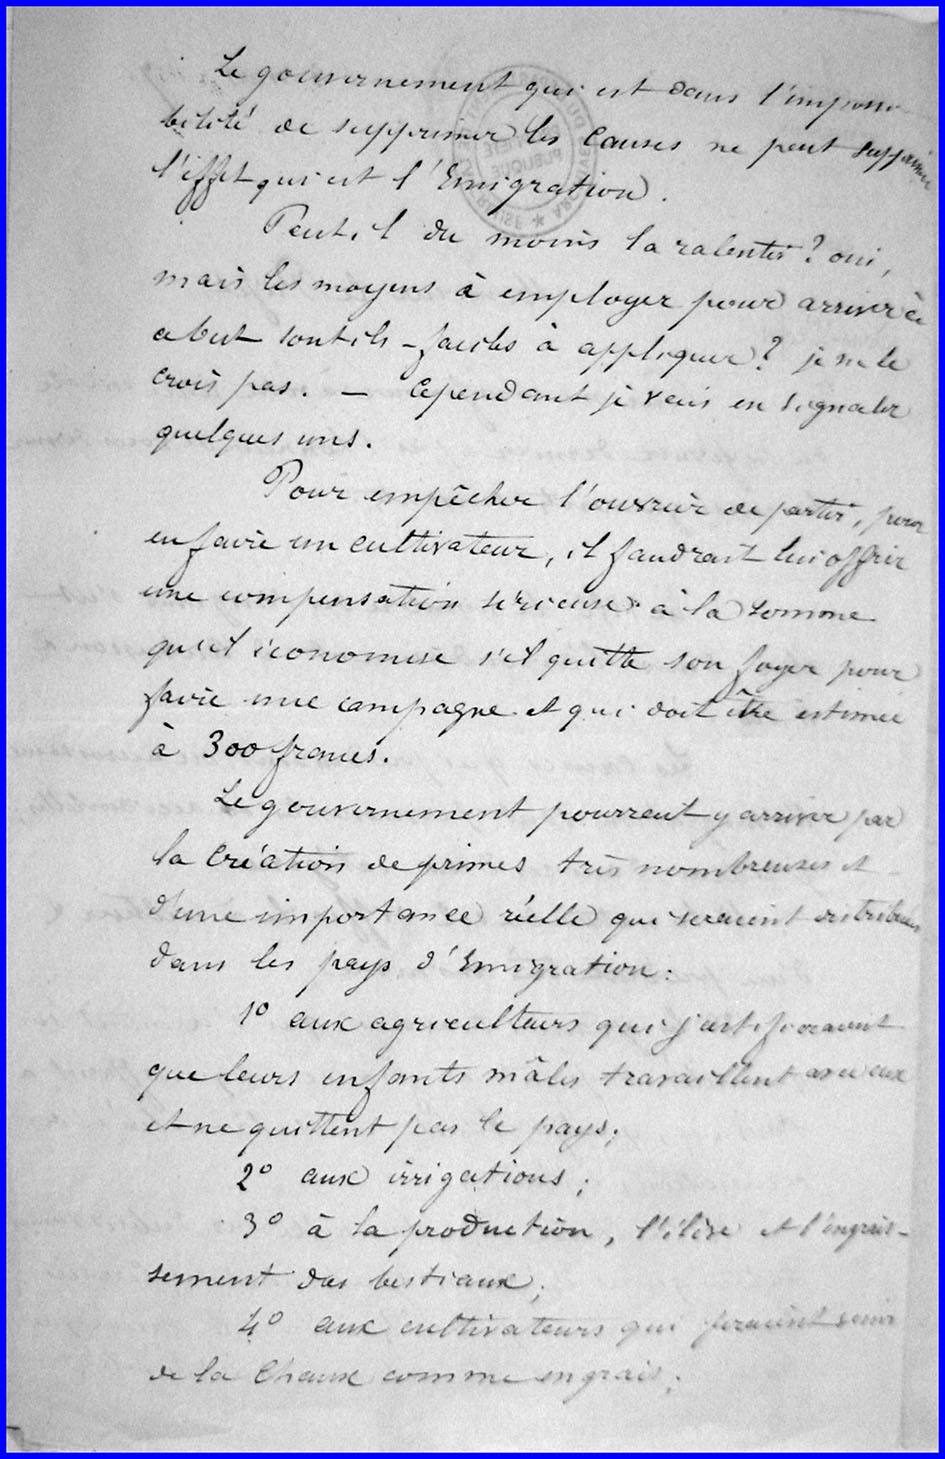 Le gouvernement qui est dans l'impossi-
bilité de supprimer les causes ne peut supprimer
l'effet qui est l'Emigration.
Peut-il du moins la ralentir ? oui,
mais les moyens à employer pour arriver à ce
but sont-ils faciles à appliquer ? je ne le
crois pas. — Cependant je vais en signaler
quelques uns.
Pour empêcher l'ouvrier de partir, pour
en faire un cultivateur, il faudrait lui offrir
une compensation serieuse à la somme
qu'il économise s'il quitte son foyer pour
faire une campagne et qui doit être estimée
à 300 francs.
Le gouvernement pourrait y arriver par
la création de primes très nombreuses et
d'une importance réelle qui seraient distribuées
dans les pays d'Emigration :
1° aux agriculteurs qui justifieraient
que leurs enfants mâles travaillent avec eux
et ne quittent pas le pays ;
2° aux irrigations ;
3° à la production, l'élève et l'engrais-
sement des bestiaux ;
4° aux cultivateurs qui feraient venir
de la Chaux comme engrais ;